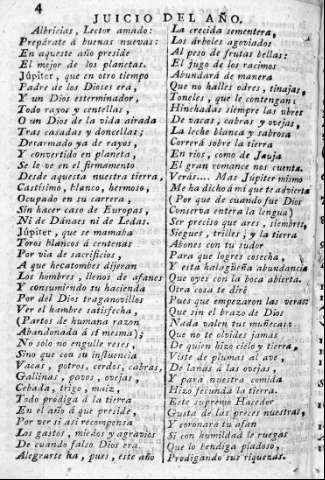 4
JUICIO DEL AÑO.
Albricias, Lector amado:
Prepárate á buenas nuevas:
En aqueste año preside
El mejor de los planetas.
Júpiter, que en otro tiempo
Padre de los Dioses era,
Y un Dios exterminador,
Todo rayos y centellas,
O un Dios de la vida airada
Tras casadas y doncellas;
Desarmado ya de rayos,
Y convertido en planeta,
Se le ve en el firmamento
Desde aquesta nuestra tierra,
Castísimo, blanco, hermoso,
Ocupado en su carrera,
Sin hacer caso de Europas,
Ni de Dánaes ni de Ledas.
Júpiter, que se mamaba
Toros blancos á centenas
Por via de sacrificios,
A que hecatombes dijeran
Los hombres, llenos de afanes
Y consumiendo su hacienda
Por del Dios traganovillos
Ver el hambre satisfecha,
(Partos de humana razon
Abandonada á sí mesma);
No solo no engulle reses,
Sino que con su influencia
Vacas, potros, cerdos, cabras,
Gallinas, pavos, ovejas,
Cebada, trigo, maiz,
Todo prodiga á la tierra
En el año á que preside,
Por ver si asi recompensa
Los gastos, miedos y agravios
De cuando falso Dios era.
Alegrarte ha, pues, este año
La crecida sementera,
Los árboles agoviados
Al peso de frutas bellas:
El jugo de los racimos
Abundará de manera
Que no halles odres, tinajas,
Toneles, que le contengan:
Hinchadas siempre las ubres
De vacas, cabras y ovejas,
La leche blanca y sabrosa
Correrá sobre la tierra
En rios, como de Jauja
El gran romance nos cuenta.
Verás.... Mas Júpiter mismo
Me ha dicho á mí que te advierta
(Por que de cuando fue Dios
Conserva entera la lengua)
Ser preciso que ares, siembres,
Siegues, trilles, y la tierra
Abones con tu sudor
Para que logres cosecha,
Y esta halagüeña abundancia
Que oyes con la boca abierta.
Otra cosa de diré
Pues que empezaron las veras:
Que sin el brazo de Dios
Nada valen tus muñecas:
Que no te olvides jamas
De quien hizo cielo y tierra,
Viste de plumas al ave,
De lanas á las ovejas,
Y para nuestra comida
Hizo fecunda la tierra.
Este supremo Hacedor
Gusta de las preces nuestras,
Y coronará tu afan
Si con humildad le ruegas
Que lo bendiga piadoso,
Prodigando sus riquezas.